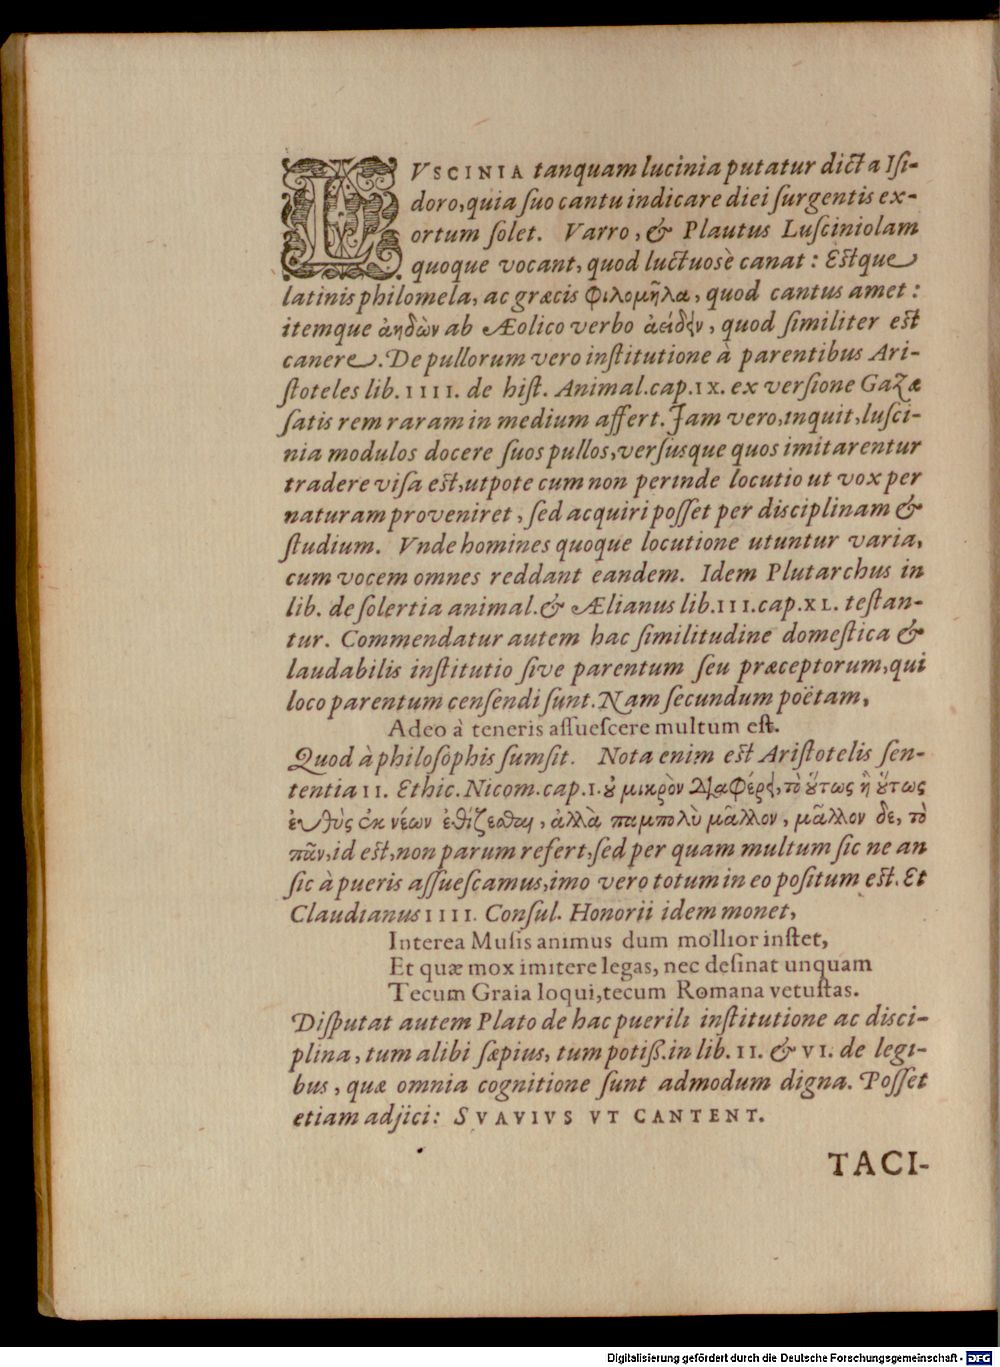 LVSCINIA tanquam lucinia putatur dicta Iſi-
doro, quia ſuo cantu indicare diei ſurgentis ex-
ortum ſolet. Varro, & Plautus Luſciniolam
quoque vocant, quod luctuoſè canat: Eſtque
latinis philomela, ac græcis φιλομῆλα, quod cantus amet:
itemque ἀηδὼν ab Æolico verbo ἀείδην, quod ſimiliter eſt
canere. De pullorum vero inſtitutione à parentibus Ari-
ſtoteles lib. IIII. de hiſt. Animal. cap. IX. ex verſione Gazæ
ſatis rem raram in medium affert. Jam vero, inquit, luſci-
nia modulos docere ſuos pullos, verſusque quos imitarentur
tradere viſa eſt, utpote cum non perinde locutio ut vox per
naturam proveniret, ſed acquiri poſſet per disciplinam &
ſtudium. Vnde homines quoque locutione utuntur varia,
cum vocem omnes reddant eandem. Idem Plutarchus in
lib. de ſolertia animal. & Ælianus lib. III. cap. XL. teſtan-
tur. Commendatur autem hac ſimilitudine domeſtica &
laudabilis inſtitutio ſive parentum ſeu præceptorum, qui
loco parentum cenſendi ſunt. Nam ſecundum poëtam,
Adeo à teneris aſſueſcere multum eſt.
Quod à philoſophis ſumſit. Nota enim eſt Ariſtotelis ſen-
tentia II. Ethic. Nicom. cap. I. ȣ μικρὸν διαφέρει, τὸ ȣ̔́τως ἢ ȣ̔́τως
εὐθὺς ἐκ νέων ἐθίζεσθαι, ἀλλὰ παμπολὺ μᾶλλον, μᾶλλον δε, τὸ
πᾶν, id eſt, non parum refert, ſed per quam multum ſic ne an
ſic à pueris aſſueſcamus, imo vero totum in eo poſitum eſt. Et
Claudianus IIII. Conſul. Honorii idem monet,
Interea Muſis animus dum mollior inſtet,
Et quæ mox imitere legas, nec deſinat unquam
Tecum Graia loqui, tecum Romana vetuſtas.
Diſputat autem Plato de hac puerili inſtitutione ac disci-
plina, tum alibi ſæpius, tum potiß. in lib. II. & VI. de legi-
bus, quæ omnia cognitione ſunt admodum digna. Poſſet
etiam adjici: SVAVIVS VT CANTENT.
TACI-
Digitalisierung gefördert durch die Deutsche Forschungsgemeinschaft - DFG